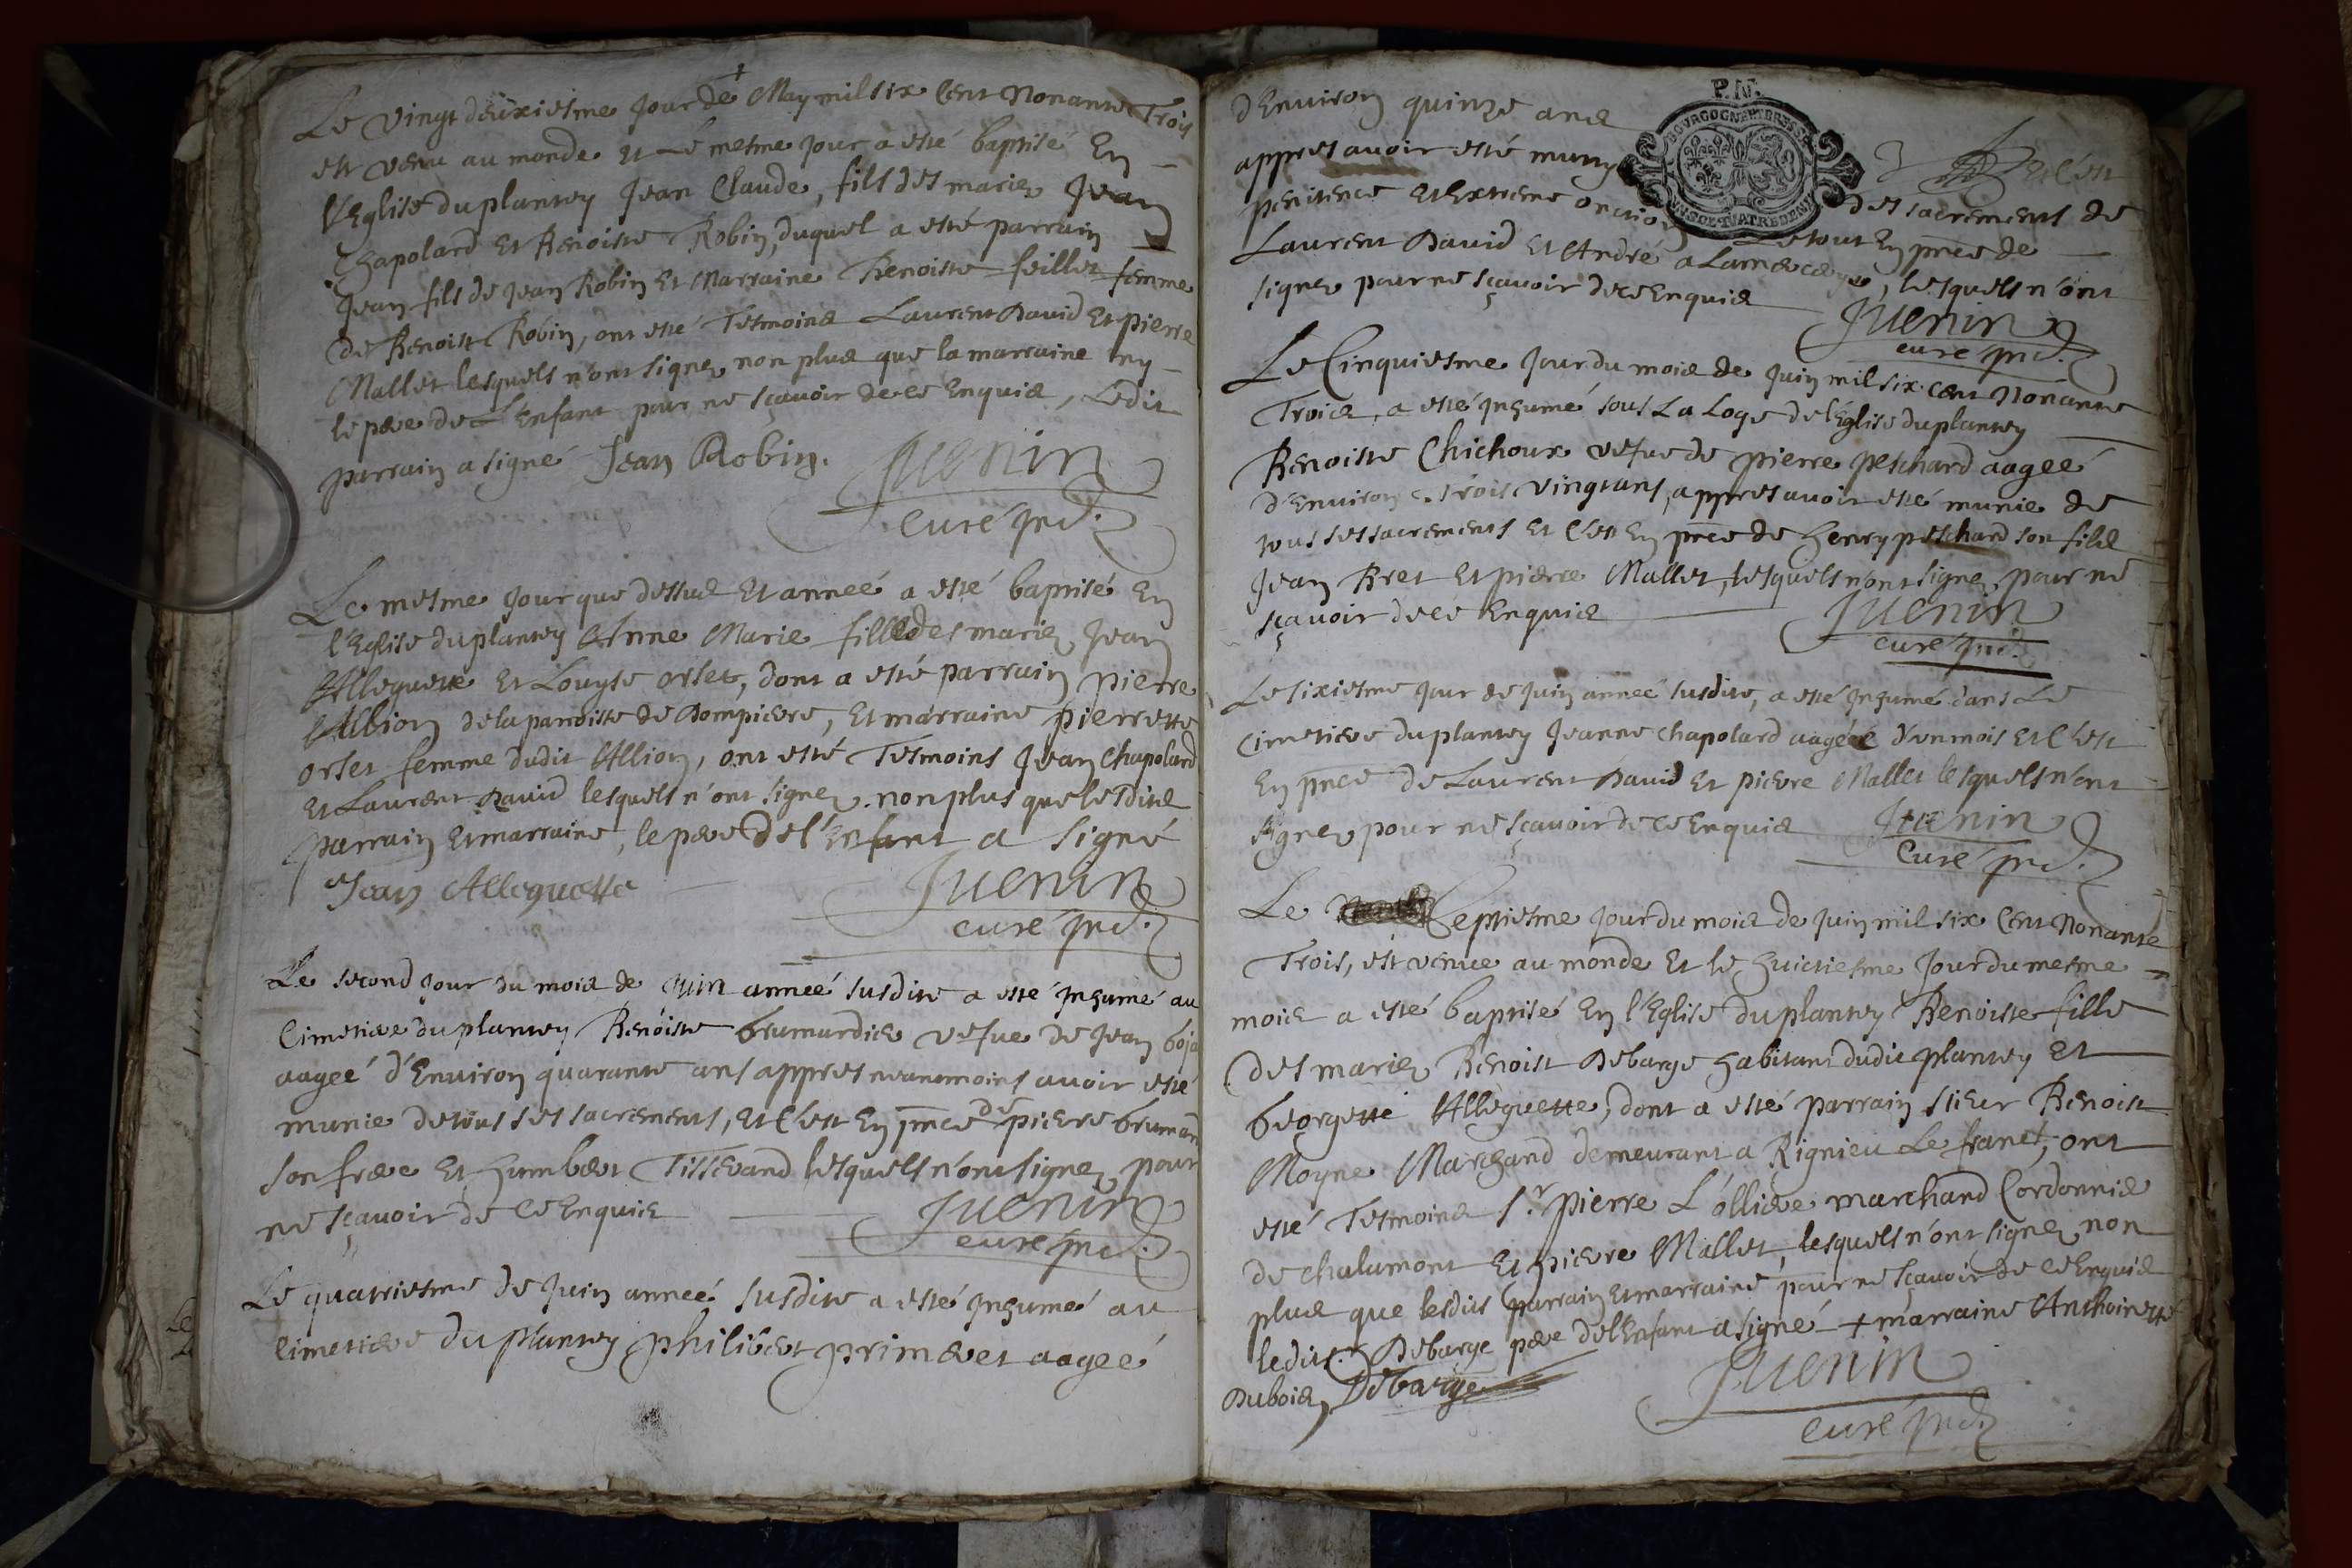 Le vingt deuxiesme Jour de May mil six Cent Nonante Trois
est venu au monde et Le mesme jour a esté baptisé En
l'Eglise du plantey Jean Claude, fils des mariez Jean
Chapolard et Benoiste Robin, duquel a esté parrain
Jean fils de Jean Robin et Marraine Benoiste feillet femme
de Benoist Robin, ont esté Tesmoins Laurent David Et pierre
Mallet lesquels n'ont signez non plus que la marraine ny
le pere de L'Enfant pour ne sçavoir de ce Enquis, Ledit
parrain a signé Jean Robin. Juenin
curé
Le mesme jour que dessus Et anneé a esté baptisé En
l'Eglise du plantey Anne Marie fille des mariez Jean
Alleguette Et Louyse orset, dont a esté parrain pierre
Allion de la parroisse de Dompierre, Et marraine pierrette
orset femme dudit Allion, ont esté Tesmoins Jean Chapolard
et Laurent David lesquels n'ont signez non plus que lesdits
parrain Et marraine, le pere de l'Enfant a signé
Jean Alleguette Juenin
curé
Le second jour du mois de Juin anneé susdite a esté Inhumé au
Cimetiere du plantey Benoiste brumardier vefue de Jean
aageé d'Environ quarante ans appres neantmoins avoir esté
munie de tous ses sacrements, Et C'est En pnce de piere
son frere Et humbert Tisserand lesquels n'ont signez pour
ne sçavoir de ce Enquis Juenin
curé
Le quatriesme de Juin anneé susdite a esté Inhumé au
Cimetiere du plantey philibert primeret aageé
d'Environ quinze ans Et C'est
appres avoir esté muny des sacrements de
penitence et Extreme onction Le tout En pnce de
Laurent David Et André, lesquels n'ont
signez pour ne sçavoir de ce Enquis Juenin
curé
Le Cinquiesme Jour du mois de Juin mil six cent Nonante
Trois, a esté Inhumé sous La Loge de l'Eglise du plantey
Benoiste Chichoux vefue de pierre peschard aageé
d'Environ trois vingt ans, appres avoir esté munie de
tous ses sacrements Et C'est En pnce de henry peschard son fils
Jean Bret Et pierre Mallet, lesquels n'ont signez pour ne
sçavoir de ce Enquis Juenin
curé
Le sixiesme jour de juin anneé susdite, a esté Inhumé dans Le
Cimetiere du plantey Jeanne Chapolard aageé d'un mois Et C'est
En pnce de Laurent David Et pierre Mallet lesquels n'ont
signez pour ne sçavoir de ce Enquis Juenin
Curé
Le septiesme Jour du mois de Juin mil six Cent Nonante
Trois, est venue au monde Et le huictiesme Jour du mesme
mois a esté baptisé En l'Eglise du plantey Benoiste fille
des mariez Benoist Debarge habitant dudit plantey Et
Georgette Alleguette, dont a esté parrain sieur Benoist
Moyne Marchand demeurant a Rignieu Le franc +, ont
esté Tesmoins Sr. pierre L'olliere marchand Cordonnier
de chalamont Et pierre Mallet, lesquels n'ont signez non
plus que lesdits parrain Et marraine pour ne sçavoir de ce Enquis
ledit Debarge pere de l'Enfant a signé + marraine Anthoinette
Dubois, Debarge Juenin
curé